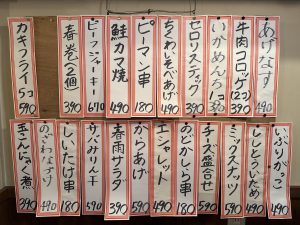 あげなす 490
牛肉コロッケ(2コ) 390
いかめんち(2コ) 390
セロリスティック 390
ちくわいそべあげ 490
ピーマン串 180
鮭カマ焼 490
ビーフジャーキー 690
春巻2個 390
カキフライ 5コ 590
いぶりがっこ 490
ししとういため 490
ミックスナッツ 590
チーズ盛合せ 590
おどりしら串 180
エシャレット 490
からあげ 490
春雨サラダ 390
サンマみりん干
しいたけ串 180
のざわなづけ 490
玉こんにゃく煮 390